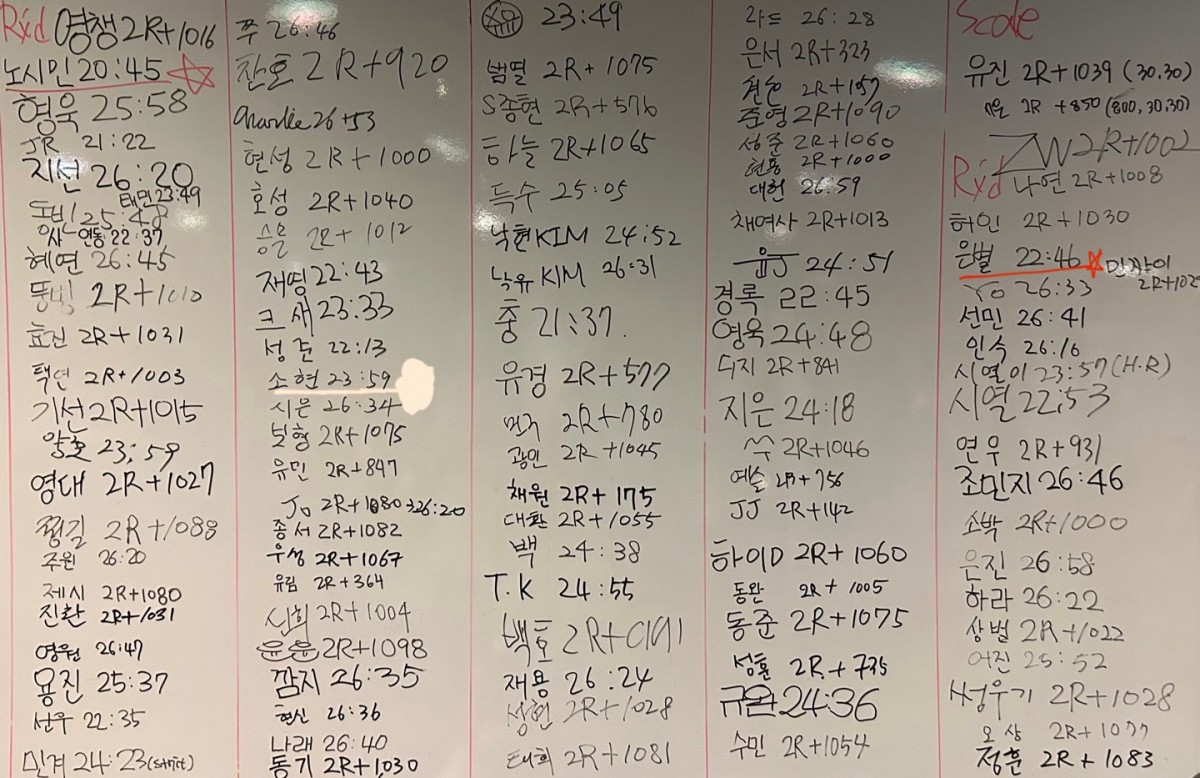 Rxd 영쟁 2R+1016
노시민 20:45
형욱 25:58
JR 21:22
지선 26:20
태민 23:49
동빈 25:48
사 연동 22:37
혜연 26:45
뚱빙 2R+1010
효진 2R+1031
택연 2R+1003
기선 2R+1015
양호 23:59
영대 2R+1027
쩡길 2R+1088
주원 26:20
제시 2R+1080
진환 2R+1031
영원 26:47
용진 25:37
선우 22:35
민겨 24:23 (strict)
쭈 26:46
찬호 2R+920
Charlie 26+53
현성 2R+1000
호성 2R+1040
승모 2R+1012
재영 22:43
크새 23:33
성준 22:13
소현 23:59
시은 26:34
보형 2R+1075
유민 2R+847
Jo 2R+1080 326:20
종서 2R+1082
우성 2R+1067
유림 2R+364
신희 2R+1004
윤윤 2R+1098
깜지 26:35
현신 26:36
나래 26:40
동기 2R+1,030
23:49
범열 2R+1075
S종현 2R+576
하늘 2R+1065
득수 25:05
낙현KIM 24:52
낙유 KIM 26:31
충 21:37.
유경 2R+577
민국 2R+780
광민 2R+1045
채원 2R+175
대환 2R+1055
백 24:38
T.K 24:55
백호 2R+
재용 26:24
성현 2R+1028
태희 2R+1081
라드 26:28
은서 2R+323
2R+157
준형 2R+1090
성준 2R+1060
현용 2R+1000
대현 26:59
채여사 2R+1013
윤J 24:51
경록 22:45
영욱 24:48
두지 2R+841
지은 24:18
쑤 2R+1046
예슬 2R+756
JJ 2R+142
하이D 2R+1060
동완 2R+1005
동준 2R+1075
성훈 2R+735
규완 24:36
수민 2R+1054
Scale
유진 2R+1039 (30.30)
2R+850 (800,30.30)
ZW 2R+1002
Rxd 나연 2R+1008
허인 2R+1030
은별 22:46
민짜이
Yo 26:33
선민 26:41
인숙 26:16
시열이 23:57 (H.R)
시열 22:53
연우 2R+931
조민지 26:46
소박 2R+1000
은진 26:58
하라 26:22
상범 2R+1022
어진 25:52
썽우기 2R+1028
오상 2R+1077
정훈 2R+1083